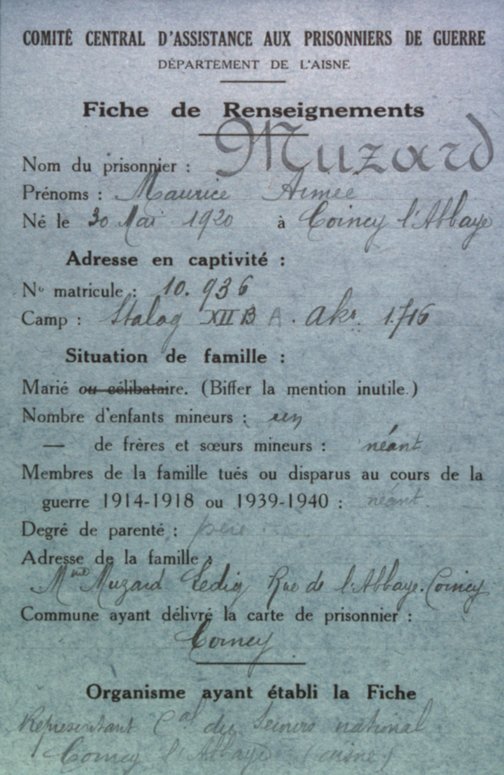 COMITÉ CENTRAL D'ASSISTANCE AUX PRISONNIERS DE GUERRE
DÉPARTEMENT DE L'AISNE
Fiche de Renseignements
Nom du prisonnier : Muzard
Prénoms : Maurice Aimée
Né le 30 Mai 1920 à Coincy l'Abbaye
Adresse en captivité :
No matricule : 10.936
Camp : Stalag XII B A. akr. 1.716
Situation de famille :
Marié ou célibataire. (Biffer la mention inutile.)
Nombre d'enfants mineurs : un
— de frères et sœurs mineurs : néant
Membres de la famille tués ou disparus au cours de la
guerre 1914-1918 ou 1939-1940 : néant
Degré de parenté : père
Adresse de la famille :
Mme Muzard Rue de l'Abbaye. Coincy
Commune ayant délivré la carte de prisonnier :
Coincy
Organisme ayant établi la Fiche
Représentant Cal du Secours national
Coincy l'Abbaye (aisne)